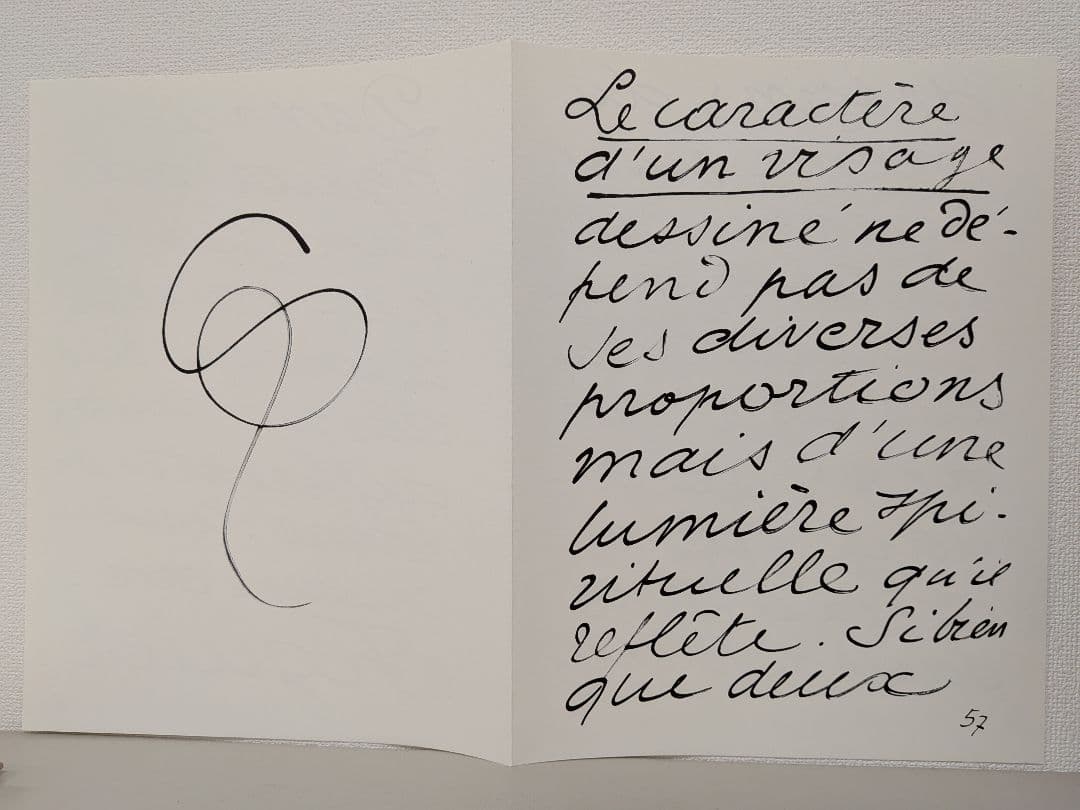 Le caractère
d'un visage
dessiné ne dé-
pend pas de
ses diverses
proportions
mais d'une
lumière spi-
rituelle qu'il
reflète. Si bien
que deux
57